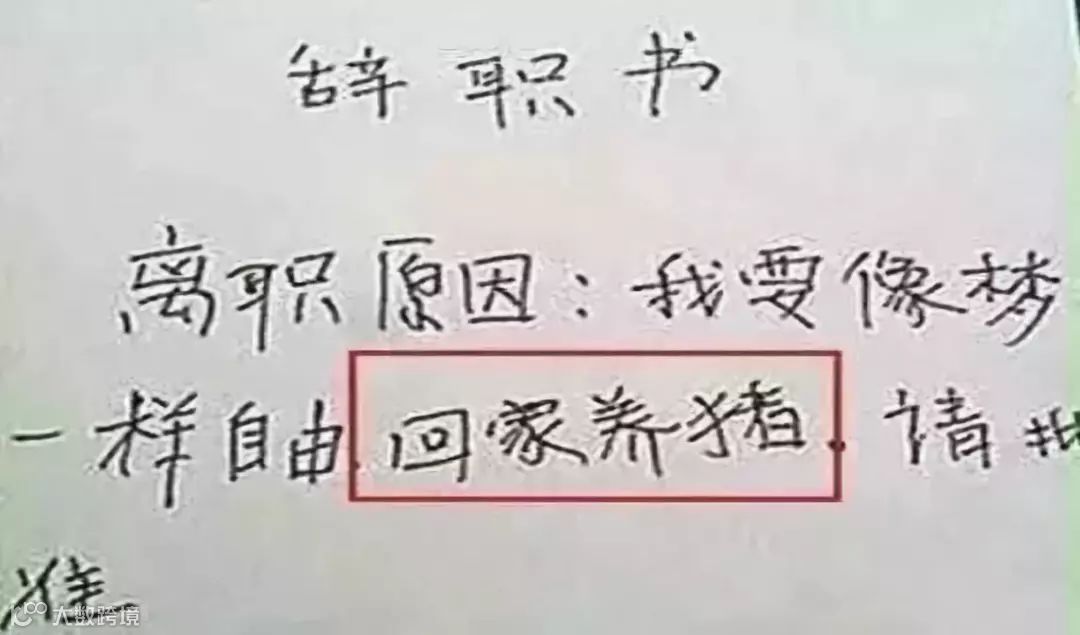 辞职书
离职原因：我要像梦
一样自由.回家养猪.请批
准
大数跨境